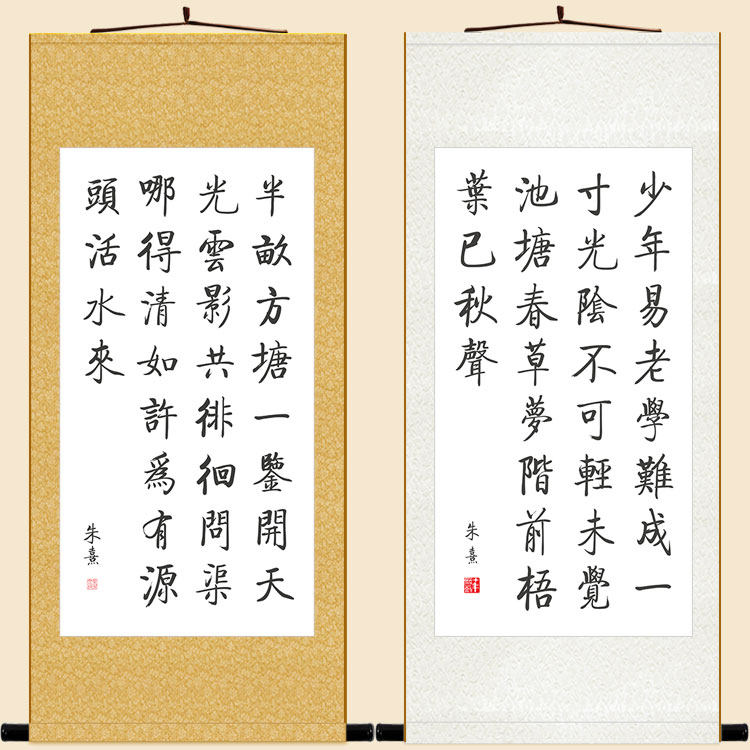 少年易老學難成一
寸光陰不可輕未覺
池塘春草夢階前梧
葉已秋聲
朱熹
半畝方塘一鑒開天
光雲影共徘徊問渠
哪得清如許爲有源
頭活水來
朱熹